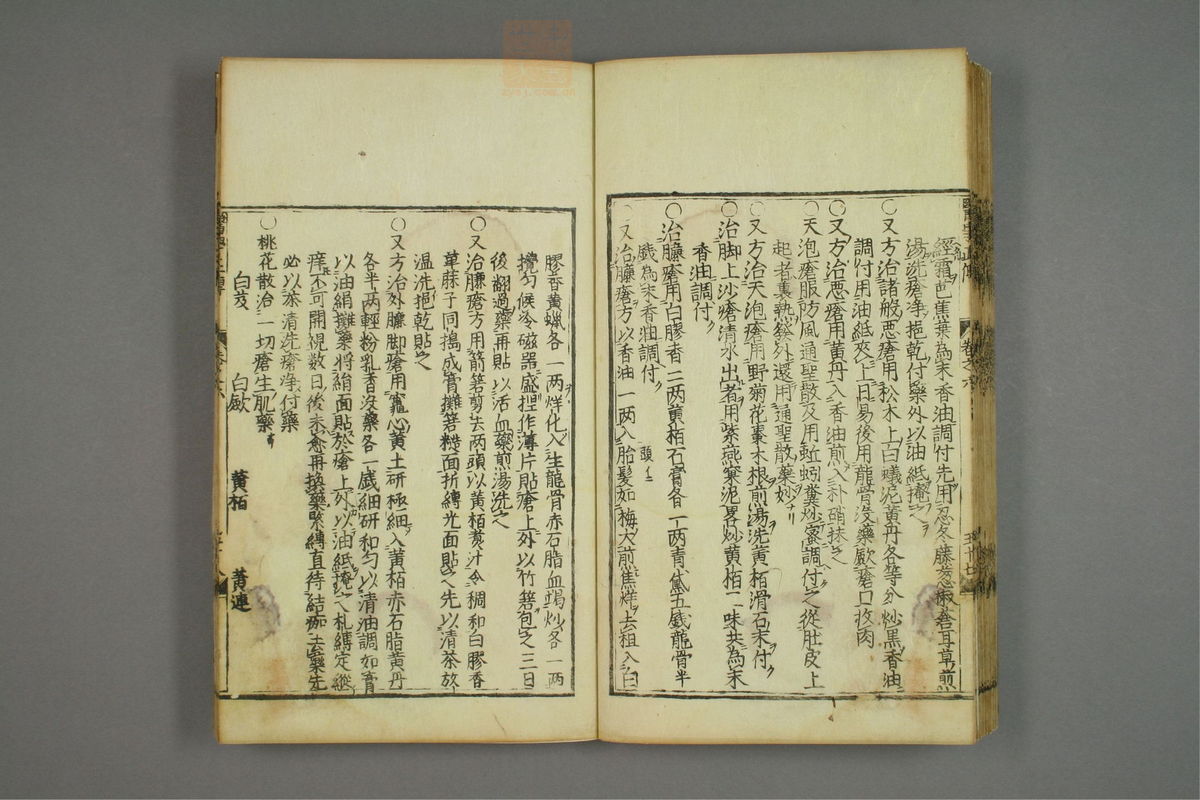 經霜芭蕉葉為末香油調付先用忍冬藤葱椒蒼耳草煎
湯洗瘡淨挹乾付藥外以油紙掩之
〇又方治諸般悪瘡用松木上白蟻泥黄丹各等分炒黒香油
調付用油紙夾上日易後用龍骨没藥歛瘡口收肉
〇又方治悪瘡用黄丹入香油煎入朴硝抹之
〇天泡瘡服防風通聖散及用蚯蚓糞炒蜜調付之從肚皮上
起者裏熱發外還用通聖散藥妙
〇又方治天泡瘡用野菊花棗木根煎湯洗黄栢滑石末付
〇治脚上沙瘡清水出者用紫燕窠泥畧炒黄栢二味共為末
香油調付
〇治臁瘡用白膠香二兩黄栢石膏各一兩青黛五錢龍骨半
錢為末香油調付
〇又治臁瘡方以香油一兩入胎髮如梅大煎焦烊去粗入白
膠香黄蝋各一两烊化入生龍骨赤石脂血竭炒各一两
攪匀候冷磁器盛捏作薄片貼瘡上外以竹箬包之三日
後翻過藥再貼以活血藥煎湯洗之
〇又治臁瘡方用箭箬剪去两頭以黄栢煑汁令稠和白膠香
草麻子同搗成膏攤箬糙面折縛光面貼之先以清茶放
温洗挹乾貼之
〇又方治外臁脚瘡用竈心黄土研極細入黄栢赤石脂黄丹
各半两輕粉乳香没藥各一錢細研和匀以清油調如膏
以油絹攤藥将絹面貼於瘡上外以油紙掩之札縛定縱
痒不可開視数日後未愈再換藥緊縛直待結痂去藥先
必以茶清洗瘡淨付藥
〇桃花散治一切瘡生肌藥
白芨 白歛 黄栢 黄連